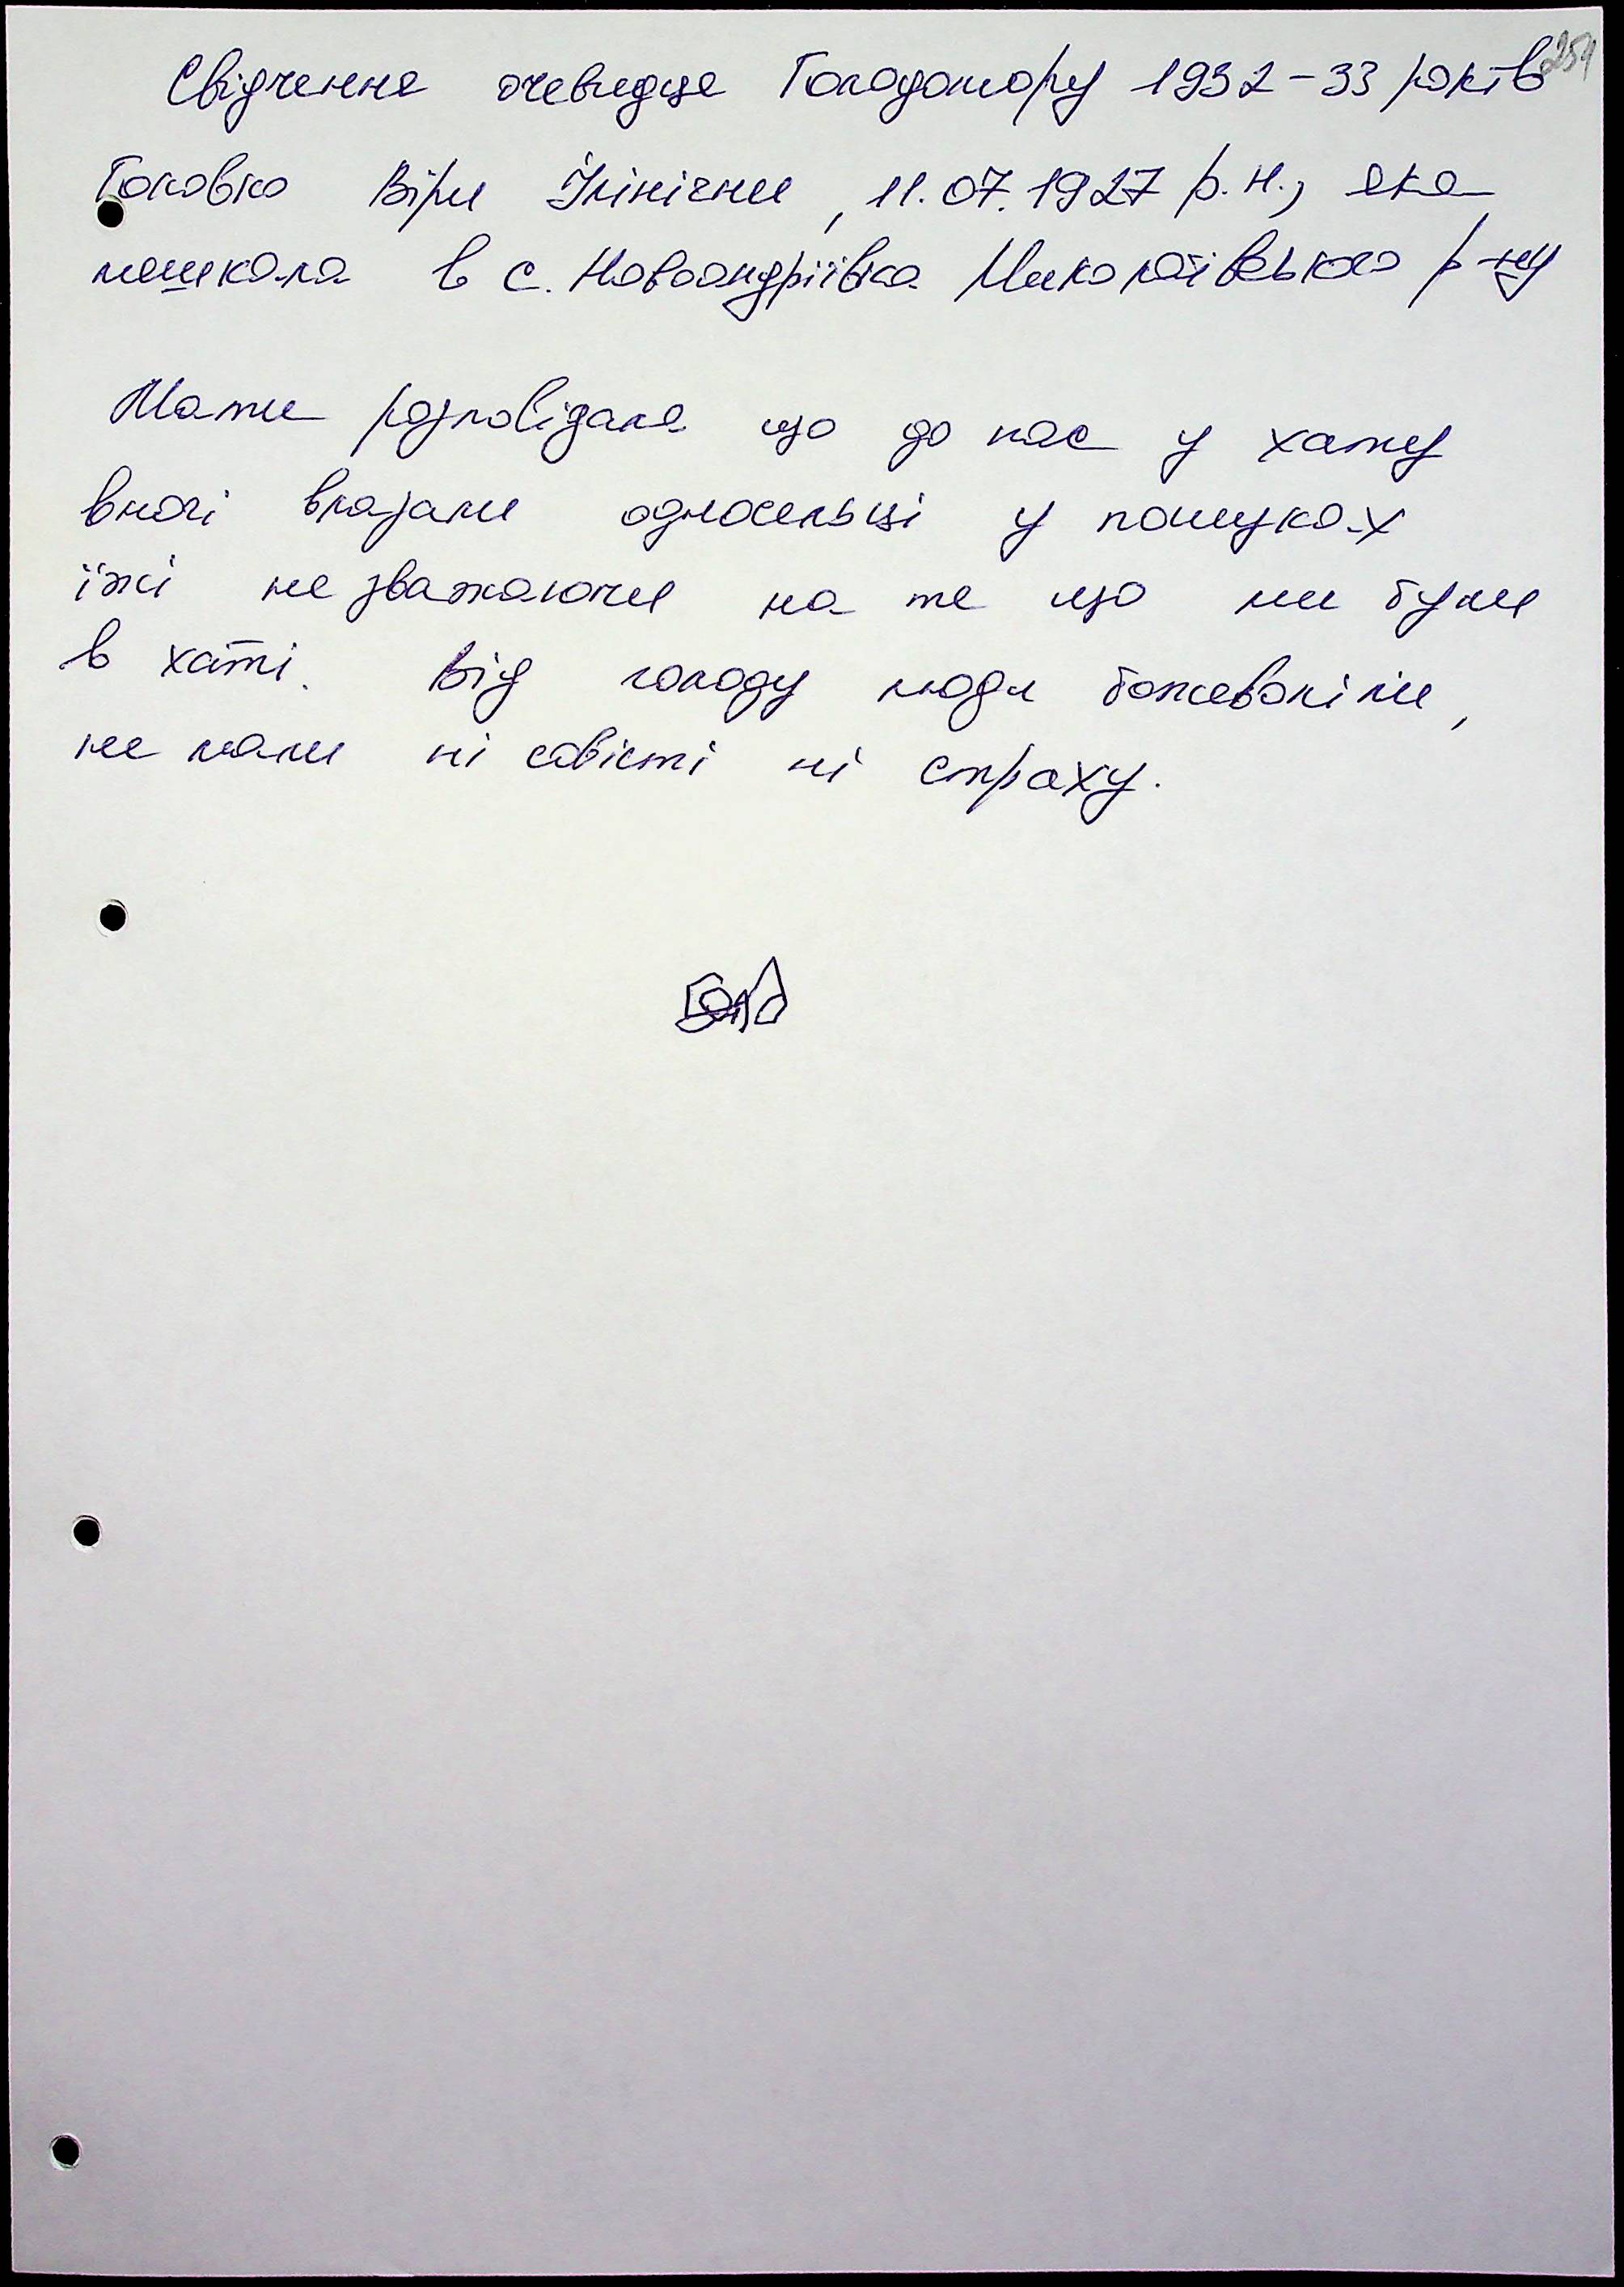 254
Свідчення очевидця Голодомору 1932-33 років
Головко Віри Іллінічни, 11.07.1927 р.н., яка
мешкала в с. Новоандріївка Миколаївського р-ну
Мати розповідала що до нас у хату
вночі влазали односельці у пошуках
їжі не зважаючи на те що ми були
в хаті. Від голоду люди божеволіли,
не мали ні совісті ні страху.